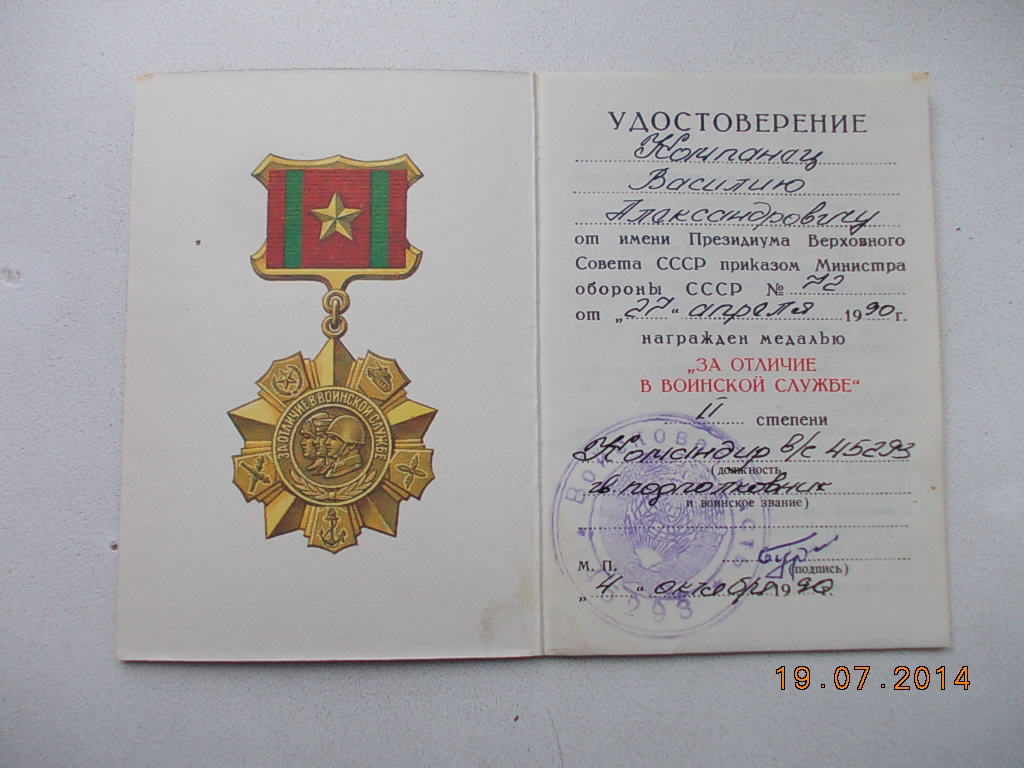 ЗА ОТЛИЧИЕ В ВОИНСКОЙ СЛУЖБЕ
УДОСТОВЕРЕНИЕ
Компанец
Василию
Александровичу
от имени Президиума Верховного
Совета СССР приказом Министра
обороны СССР № 72
от „27“ апреля 1990г.
награжден медалью
„ЗА ОТЛИЧИЕ
В ВОИНСКОЙ СЛУЖБЕ“
II степени
Командир в/ч 45293
(должность
гв. подполковник
и воинское звание)
М. П.
(подпись)
„4“ октября 1990
45293
19.07.2014